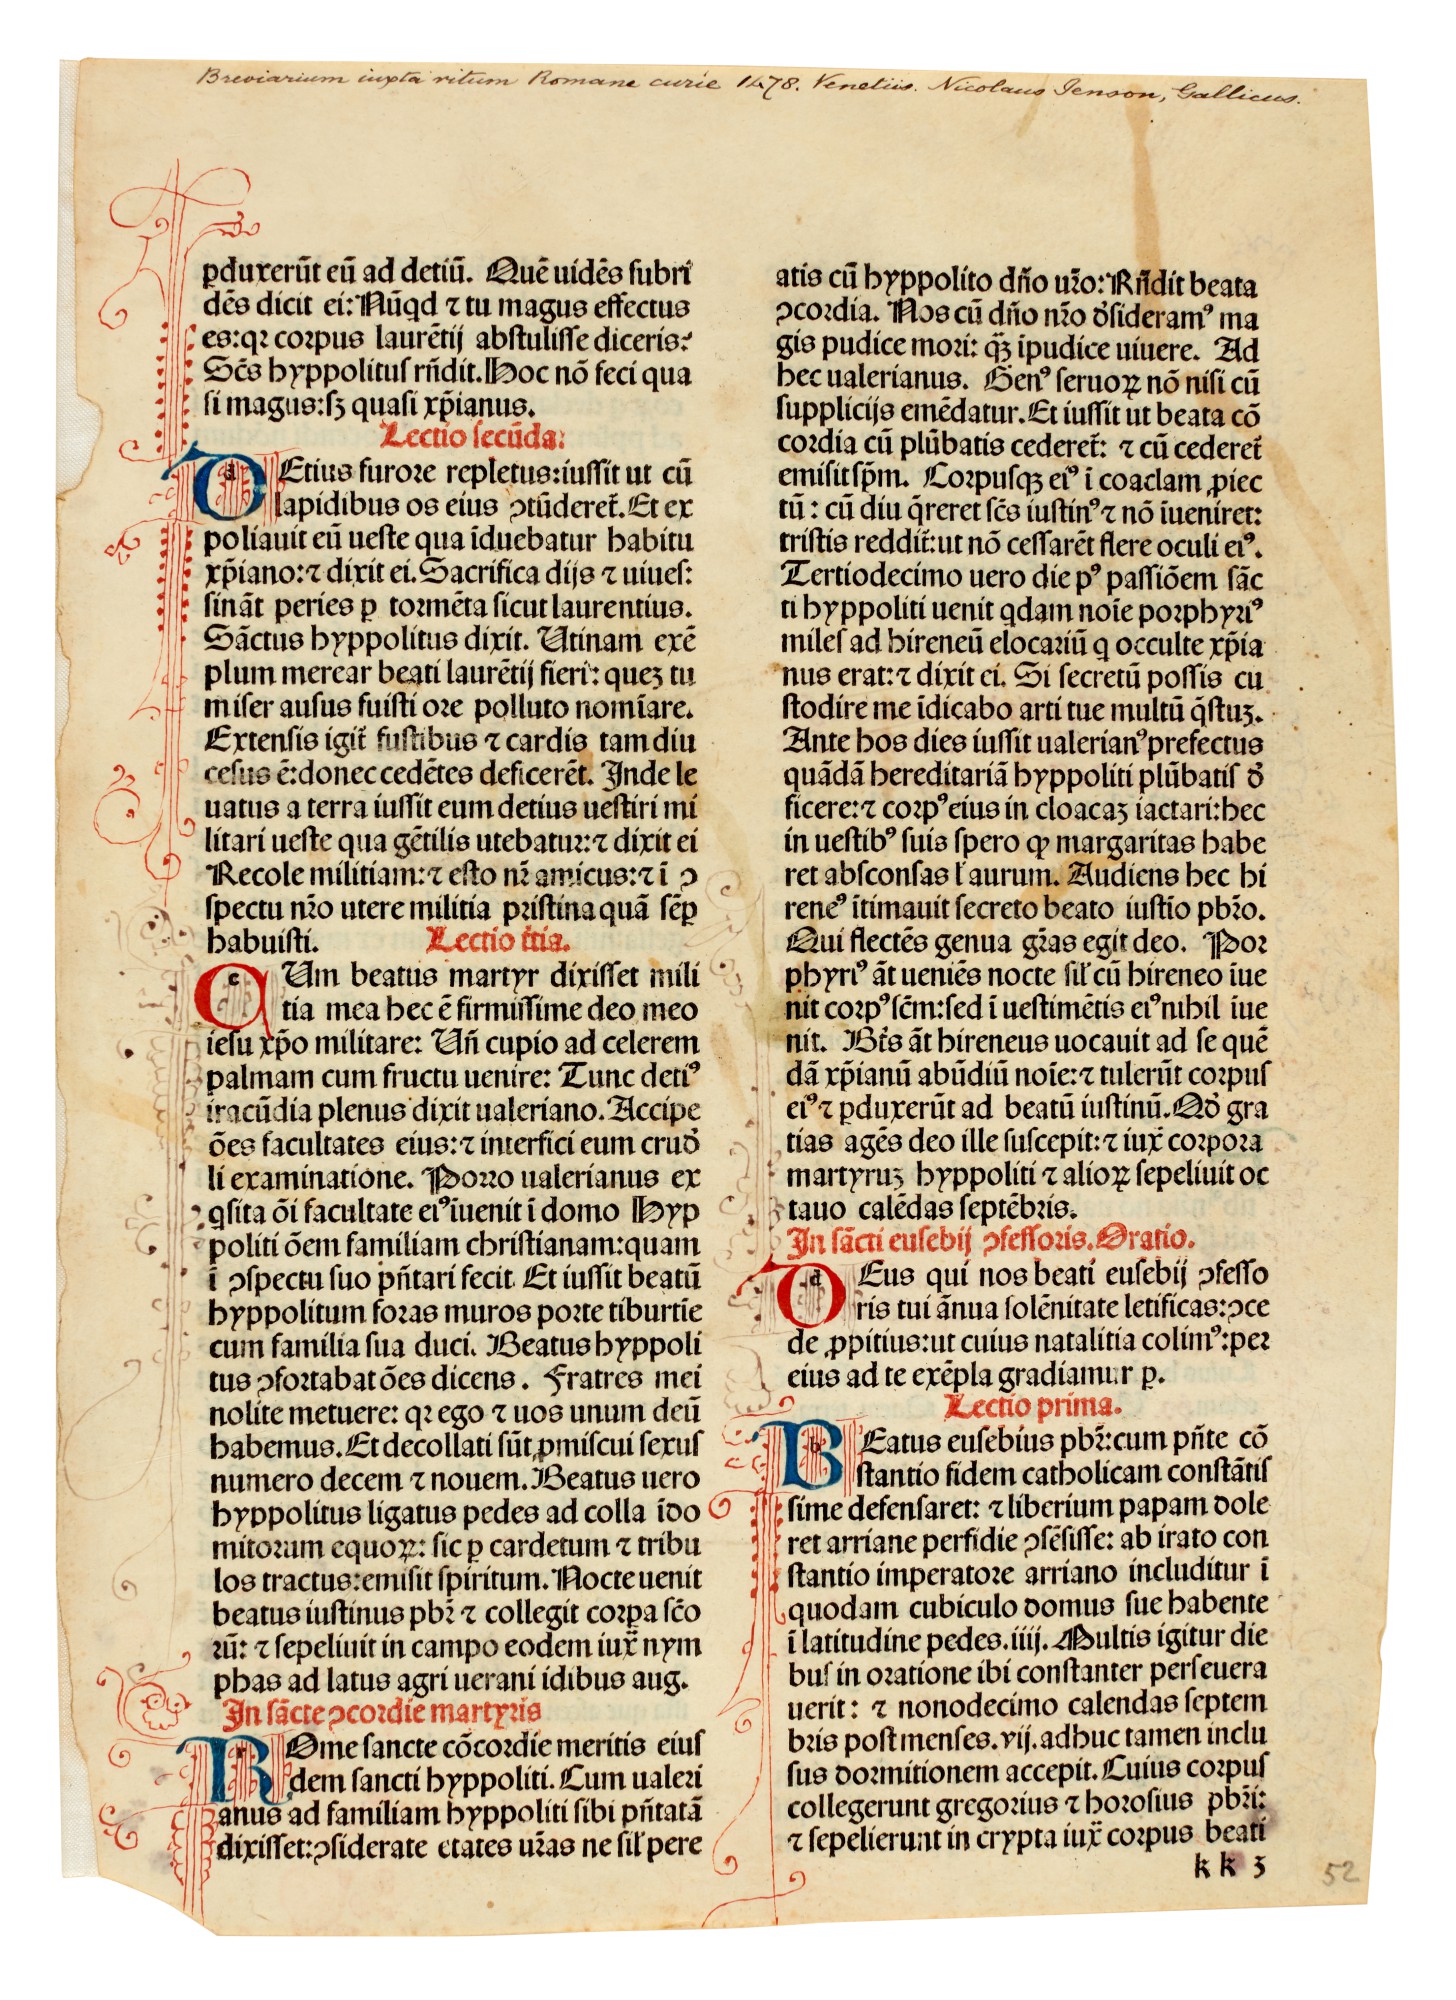 Breviarium iuxta ritum Romane curie 1478. Venetiis. Nicolaus Jenson, Gallicus.
ꝑduxerūt eū ad detiū. Quē uidēs subri
dēs dicit ei: Nūqd ⁊ tu magus effectus
es:qꝛ corpus laurētij abstulisse diceris:
Sc̄s hyppolitus rn̄dit. Hoc nō feci qua
si magus:sꝫ quasi xp̄ianus.
Lectio secūda:
d
DEtius furore repletus:iussit ut cū
lapidibus os eius ↄtūderet̄. Et ex
poliauit eū ueste qua īduebatur habitu
xp̄iano:⁊ dixit ei. Sacrifica dijs ⁊ uiues:
sināt peries ꝑ tormēta sicut laurentius.
Sāctus hyppolitus dixit. Utinam exē
plum merear beati laurētij fieri: queꝫ tu
miser ausus fuisti ore polluto nomīare.
Extensis igit̄ fustibus ⁊ cardis tam diu
cesus ē:donec cedētes deficerēt. Inde le
uatus a terra iussit eum detius uestiri mi
litari ueste qua gētilis utebatur:⁊ dixit ei
Recole militiam:⁊ esto nr̄ amicus:⁊ ī ↄ
spectu nr̄o utere militia pristina quā sēꝑ
habuisti.
Lectio t̄tia.
c
CUm beatus martyr dixisset mili
tia mea hec ē firmissime deo meo
iesu xp̄o militare: Un̄ cupio ad celerem
palmam cum fructu uenire: Tunc detiꝰ
iracūdia plenus dixit ualeriano. Accipe
ōes facultates eius:⁊ interfici eum crud̓
li examinatione. Porro ualerianus ex
qsita ōi facultate eiꝰ īuenit ī domo Hyp
politi ōem familiam christianam:quam
ī ↄspectu suo pn̄tari fecit. Et iussit beatū
hyppolitum foras muros porte tiburtīe
cum familia sua duci. Beatus hyppoli
tus ↄfortabat ōes dicens. Fratres mei
nolite metuere: qꝛ ego ⁊ uos unum deū
habemus. Et decollati sūt ꝓmiscui sexus
numero decem ⁊ nouem. Beatus uero
hyppolitus ligatus pedes ad colla īdo
mitorum equoꝝ: sic ꝑ cardetum ⁊ tribu
los tractus:emisit spiritum. Nocte uenit
beatus iustinus pbr̄ ⁊ collegit corpa sc̄o
rū: ⁊ sepeliuit in campo eodem iux̄ nym
phas ad latus agri uerani idibus aug.
In sācte ↄcordie martyris
ROme sancte cōcordie meritis eius
dem sancti hyppoliti. Cum ualeri
anus ad familiam hyppoliti sibi pn̄tatā
dixisset:ↄsiderate etates ur̄as ne sil̄ pere
atis cū hyppolito dn̄o ur̄o: Rn̄dit beata
ↄcordia. Nos cū dn̄o nr̄o d̓sideramꝰ ma
gis pudice mori: q̄ꝫ īpudice uiuere. Ad
hec ualerianus. Genꝰ seruoꝝ nō nisi cū
supplicijs emēdatur. Et iussit ut beata cō
cordia cū plūbatis cederet̄: ⁊ cū cederet̄
emisit sp̄m. Corpusqꝫ eiꝰ ī coaclam ꝓiec
tū: cū diu q̄reret sc̄s iustinꝰ ⁊ nō īueniret:
tristis reddit̄:ut nō cessarēt flere oculi eiꝰ.
Tertiodecimo uero die pꝰ passiōem sāc
ti hyppoliti uenit qdam noīe porphyriꝰ
miles ad hireneū clocariū q occulte xp̄ia
nus erat:⁊ dixit ei. Si secretū possis cu
stodire me īdicabo arti tue multū q̄stuꝫ.
Ante hos dies iussit ualerianꝰ prefectus
quādā hereditariā hyppoliti plūbatis d̓
ficere:⁊ corpꝰ eius in cloacaꝫ iactari:hec
in uestibꝰ suis spero qꝙ margaritas habe
ret absconsas l̄ aurum. Audiens hec hi
reneꝰ ītimauit secreto beato iustio pbr̄o.
Qui flectēs genua gr̄as egit deo. Por
phyriꝰ āt ueniēs nocte sil̄ cū hireneo īue
nit corpꝰ sc̄m:sed ī uestimētis eiꝰ nihil īue
nit. Bt̄s āt hireneus uocauit ad se quē
dā xp̄ianū abūdiū noīe:⁊ tulerūt corpus
eiꝰ ⁊ ꝑduxerūt ad beatū iustinū. Qd̓ gra
tias agēs deo ille suscepit:⁊ iux̄ corpora
martyruꝫ hyppoliti ⁊ alioꝝ sepeliuit oc
tauo calēdas septēbris.
In sācti eusebij ↄfessoris. Oratio.
d
DEus qui nos beati eusebij ↄfesso
ris tui ānua solēnitate letificas:ↄce
de ꝓpitius:ut cuius natalitia colimꝰ:per
eius ad te exēpla gradiamur ꝑ.
Lectio prima.
b
BEatus eusebius pbr̄:cum pn̄te cō
stantio fidem catholicam constātis
sime defensaret: ⁊ liberium papam dole
ret arriane perfidie ↄsēsisse: ab irato con
stantio imperatore arriano includitur ī
quodam cubiculo domus sue habente
ī latitudine pedes.iiij. Multis igitur die
bus in oratione ibi constanter perseuera
uerit: ⁊ nonodecimo calendas septem
bris post menses.vij.adhuc tamen inclu
sus dormitionem accepit. Cuius corpus
collegerunt gregorius ⁊ horosius pbr̄i:
⁊ sepelierunt in crypta iux̄ corpus beati
kk 3
52